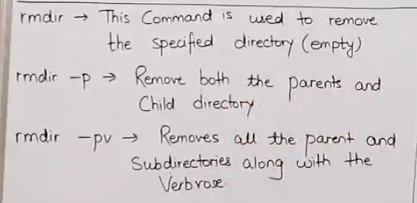 rmdir → This Command is used to remove
the specified directory (empty)
rmdir -p → Remove both the parents and
Child directory
rmdir -pv → Removes all the parent and
Subdirectories along with the
Verbrose.